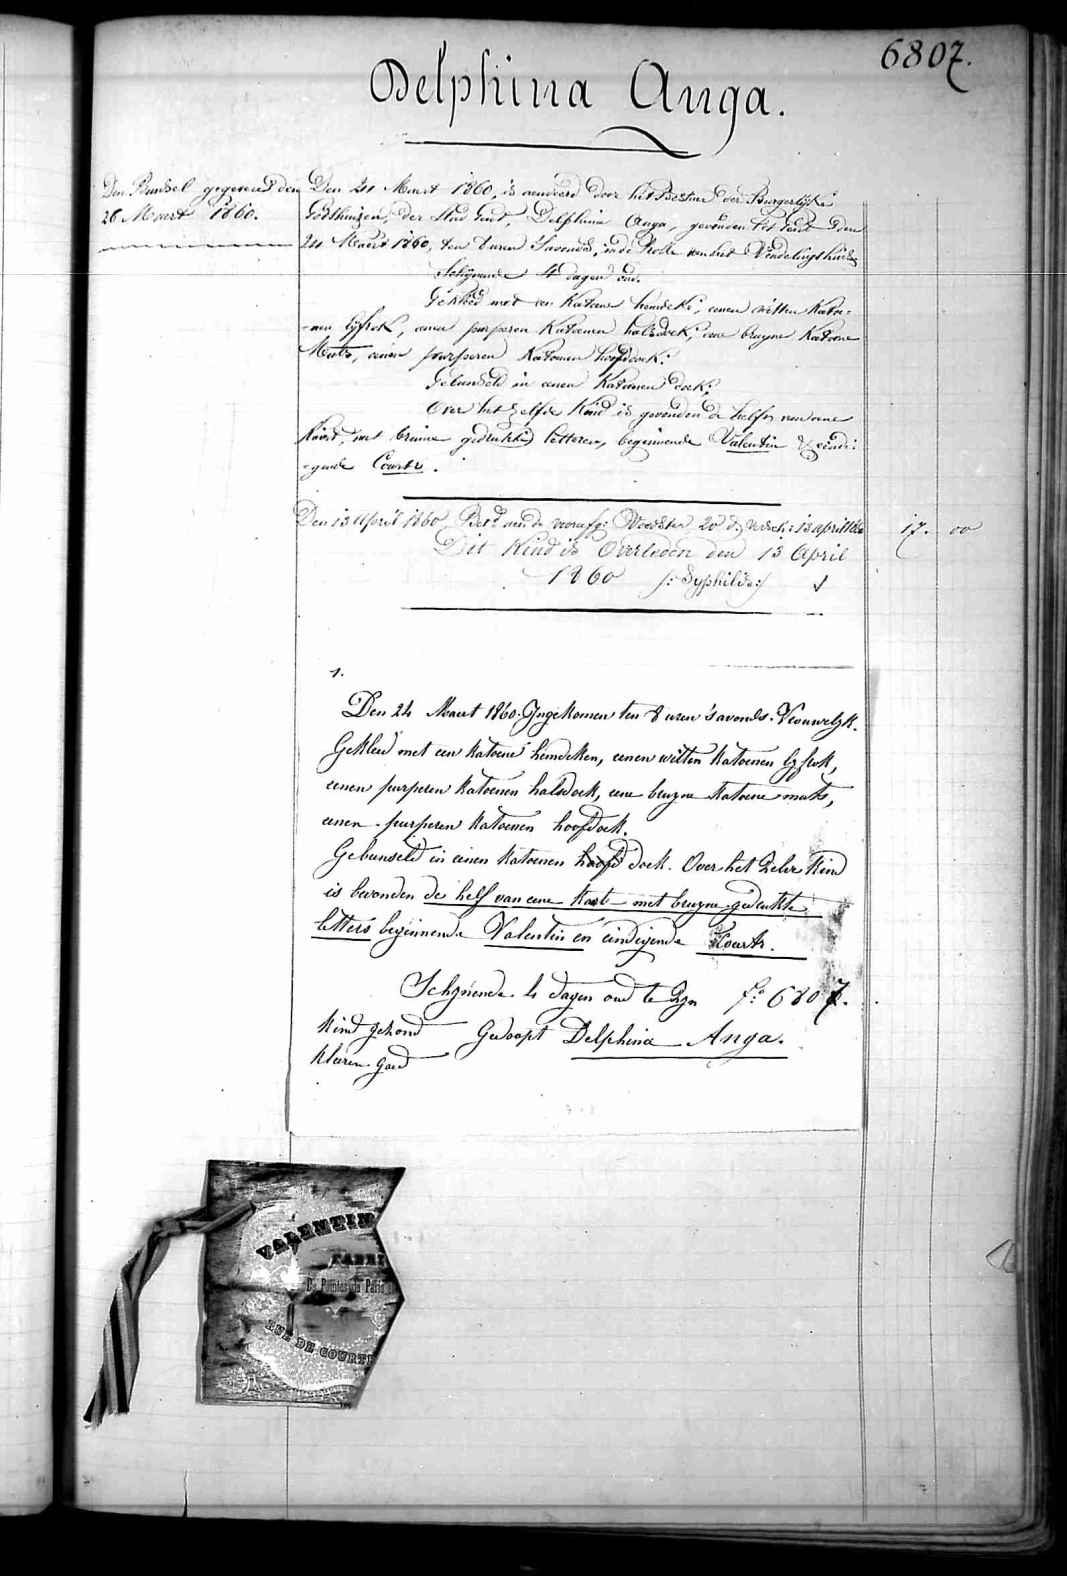 6807.
Delphina Anga.
Den Bundsel gegeven den
26 Maart 1860.
Den 24 Maart 1860, is aenveerd door het Bestuur der Burgerlyke
Godshuizen, der Stad Gent, Delphina Anga, gevonden tot Gent den
24 Maart 1860, ten 8 uren 's avonds, in de Rolle van het Vindelingshuis
Schynende 4 dagen oud.
Gekleed met een Katoene hemdeke; eenen witten Katoe-
-nen lyfrok, eenen purperen Katoenen halsdoek; eene bruyne Katoene
Muts, eenen purperen Katoenen hoofddoek.
Gebunseld in eenen Katoenen doek;
Over het zelfde Kind is gevonden de helft van eene
Kaart, met bruine gedrukte letteren, beginnende Valentin & eindi-
-gende Courtr.
Den 13 April 1860 Bet. aan de voorzg: Voedster 20 d. versch: 13 april 1860 17. 00
Dit Kind is Overleden den 13 April
1860 /: Syphilis :/
1.
Den 24 Maart 1860. Ingekomen ten 8 uren 's avonds. Vrouwelyk.
Gekleed met een katoene hemdeken, eenen witten katoenen lyfrok,
eenen purperen katoenen halsdoek, eene bruyne katoene muts,
eenen purperen katoenen hoofdoek.
Gebunseld in eenen katoenen hoofd doek. Over het zelve kind
is bevonden de helf van eene kart met bruyne gedrukte
letters beginnende Valentin en eindigende Courtr.
Schynende 4 dagen oud te zyn f° 6807.
kind gezond Gedoopt Delphina Anga.
kleeren goed
VALENTIN
FABRI
De Pointes de Paris
RUE DE COURTR